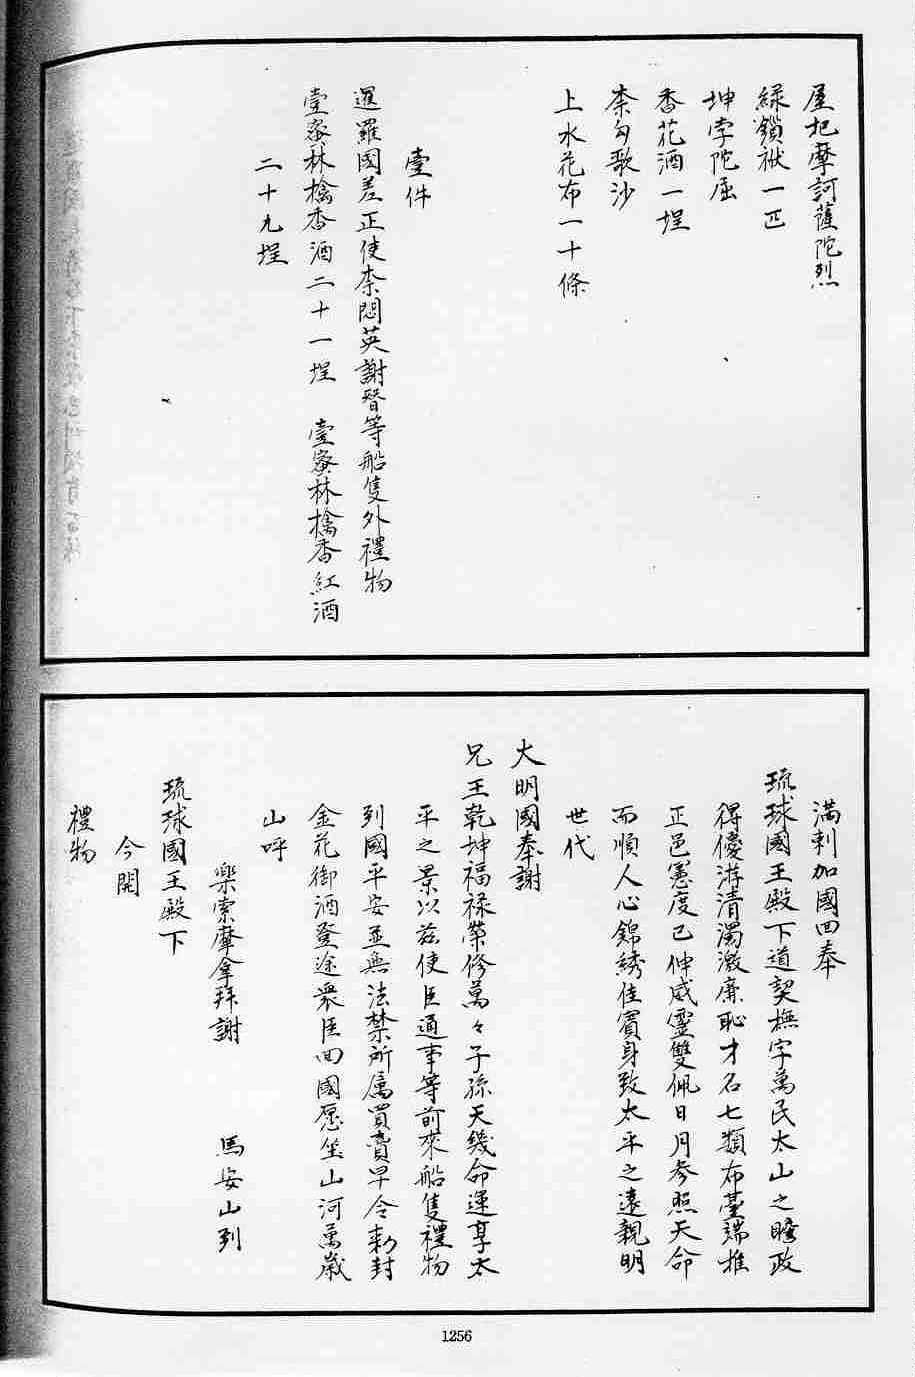 屋圯摩訶薩陀烈
綠鎖袱一匹
坤孛陀屈
香花酒一埕
柰勾歌沙
上水花布一十條
壹件
暹羅國差正使柰悶英謝替等船隻外禮物
壹蜜林檎香酒二十一埕 壹蜜林檎香紅酒
二十九埕
滿剌加國回奉
琉球國王殿下道契撫字萬民太山之瞻政
得優游清濁激廉恥才名七類布臺端推
正邑憲度己伸威靈雙佩日月參照天命
而順人心錦綉佳賓身致太平之遠親明
世代
大明國奉謝
兄王乾坤福祿榮修萬々子孫天幾命運享太
平之景以茲使臣通事等前來船隻禮物
到國平安並無法禁所属買賣早令勑封
金花御酒登途衆臣回國愿坐山河萬歲
山呼
樂索摩拿拜謝 馬安山到
琉球國王殿下
今開
禮物
1256